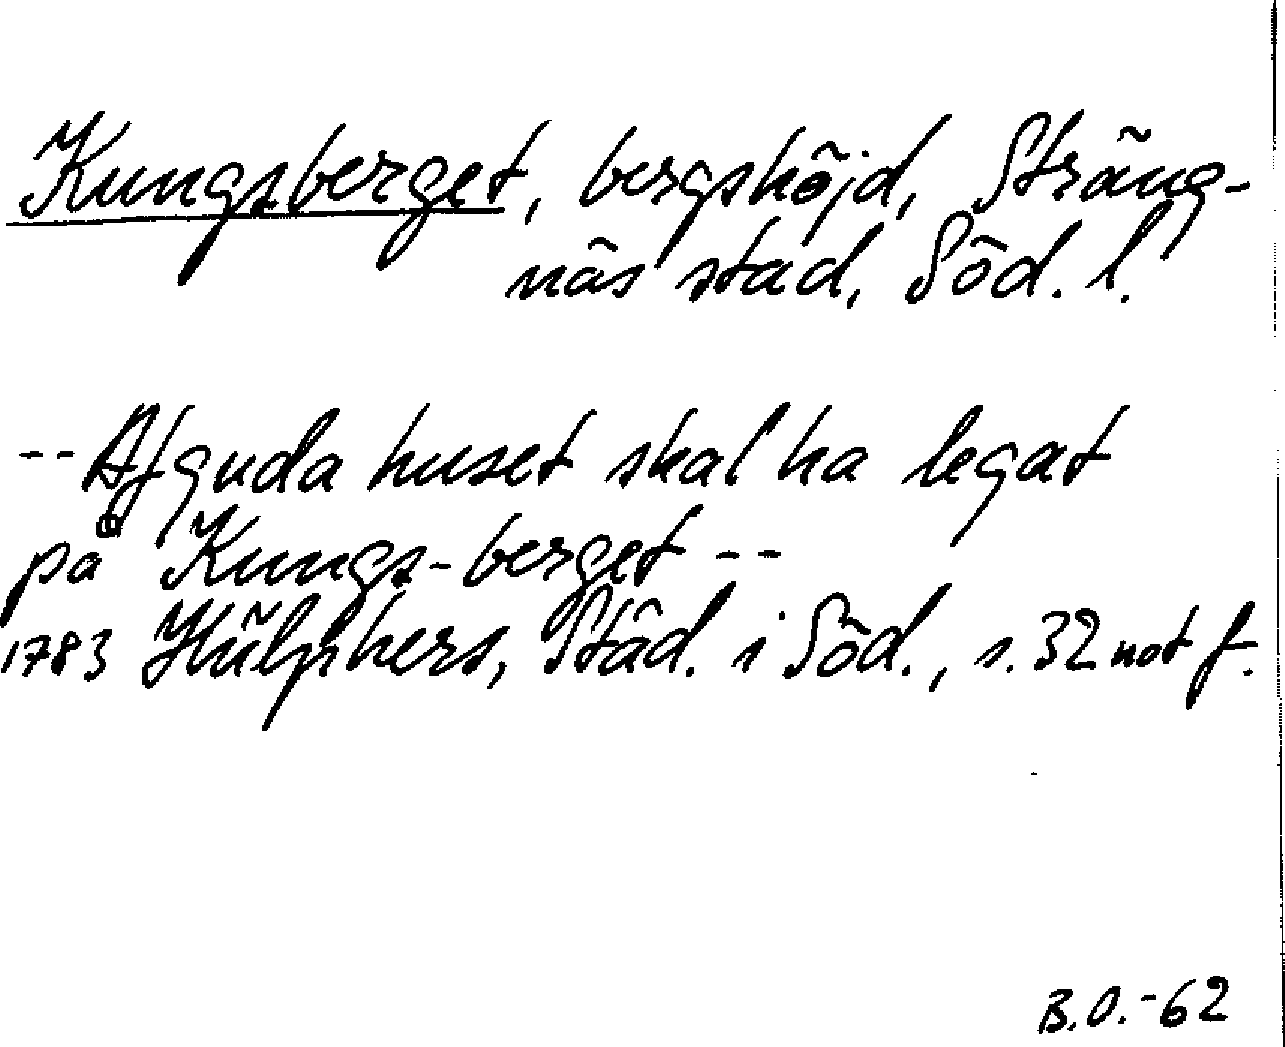 Kungsberget, bergshöjd, Sträng-
näs stad, Söd. l.
-- Afguda huset skal ha legat
på Kungs-berget --
1783 Hülphers, Städ. i Söd., s. 32 not f.
B.O.-62